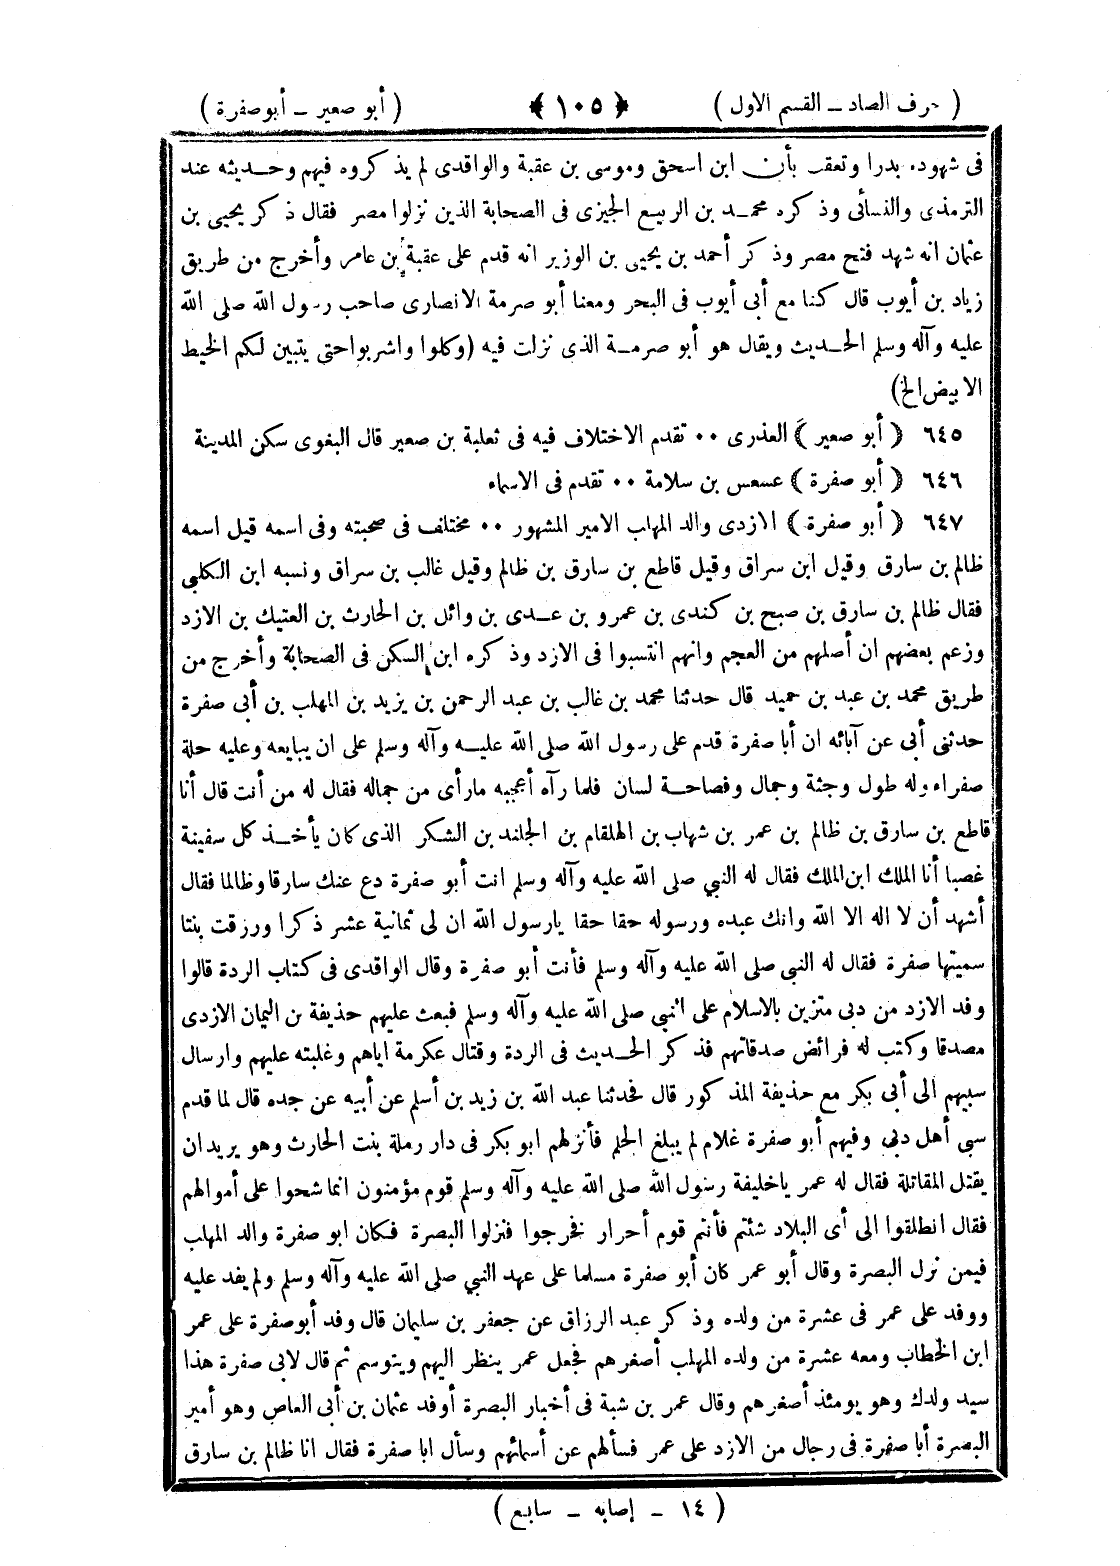 ( حرف الصاد ــ القسم الاول ) ﴿ ١٠٥ ﴾ ( أبو صعير ــ أبو صفرة )
فى شهوده بدرا وتعقب بأن ابن اسحق وموسى بن عقبة والواقدى لم يذكروه فيهم وحديثه عند
الترمذى والنسأئى وذكره محمد بن الربيع الجيزى فى الصحابة الذين نزلوا مصر فقال ذكر يحيى بن
عثمان انه شهد فتح مصر وذكر أحمد بن يحيى بن الوزير انه قدم على عقبة بن عامر وأخرج من طريق
زياد بن أيوب قال كنا مع أبى أيوب فى البحر ومعنا أبو صرمة الانصارى صاحب رسول الله صلى الله
عليه وآله وسلم الحديث ويقال هو أبو صرمة الذى نزلت فيه (وكلوا واشربوا حتى يتبين لكم الخيط
الابيض الخ)
٦٤٥ ﴿ أبو صعير ﴾ العذرى ٠٠ تقدم الاختلاف فيه فى ثعلبة بن صعير قال البغوى سكن المدينة
٦٤٦ ﴿ أبو صفرة ﴾ عسعس بن سلامة ٠٠ تقدم فى الاسماء
٦٤٧ ﴿ أبو صفرة ﴾ الازدى والد المهلب الامير المشهور ٠٠ مختلف فى صحبته وفى اسمه قيل اسمه
ظالم بن سارق وقيل ابن سراق وقيل قاطع بن سارق بن ظالم وقيل غالب بن سراق ونسبه ابن الكلبى
فقال ظالم بن سارق بن صبح بن كندى بن عمرو بن عدى بن وائل بن الحارث بن العتيك بن الازد
وزعم بعضهم ان أصلهم من العجم وانهم انتسبوا فى الازد وذكره ابن السكن فى الصحابة وأخرج من
طريق محمد بن عبد بن حميد قال حدثنا محمد بن غالب بن عبد الرحمن بن يزيد بن المهلب بن أبى صفرة
حدثنى أبى عن آبائه ان أبا صفرة قدم على رسول الله صلى الله عليه وآله وسلم على ان يبايعه وعليه حلة
صفراء وله طول وجثة وجمال وفصاحة لسان فلما رآه أعجبه مارأى من جماله فقال له من أنت قال أنا
قاطع بن سارق بن ظالم بن عمر بن شهاب بن الهلقام بن الجلند بن الشكر الذى كان يأخذ كل سفينة
غصبا أنا الملك ابن الملك فقال له النبي صلى الله عليه وآله وسلم انت أبو صفرة دع عنك سارقا وظالما فقال
أشهد أن لا اله الا الله وانك عبده ورسوله حقا حقا يارسول الله ان لى ثمانية عشر ذكرا ورزقت بنتا
سميتها صفرة فقال له النبى صلى الله عليه وآله وسلم فأنت أبو صفرة وقال الواقدى فى كتاب الردة قالوا
وفد الازد من دبى متزين بالاسلام على النبى صلى الله عليه وآله وسلم فبعث عليهم حذيفة بن اليمان الازدى
مصدقا وكتب له فرائض صدقاتهم فذكر الحديث فى الردة وقتال عكرمة اياهم وغلبته عليهم وارسال
سبيهم الى أبى بكر مع حذيفة المذكور قال فحدثنا عبد الله بن زيد بن أسلم عن أبيه عن جده قال لما قدم
سبى أهل دبى وفيهم أبو صفرة غلام لم يبلغ الحلم فأنزلهم ابو بكر فى دار رملة بنت الحارث وهو يريد ان
يقتل المقاتلة فقال له عمر ياخليفة رسول الله صلى الله عليه وآله وسلم قوم مؤمنون انما شحوا على أموالهم
فقال انطلقوا الى أى البلاد شئتم فأنتم قوم أحرار فخرجوا فنزلوا البصرة فكان ابو صفرة والد المهلب
فيمن نزل البصرة وقال أبو عمر كان أبو صفرة مسلما على عهد النبي صلى الله عليه وآله وسلم ولم يفد عليه
ووفد على عمر فى عشرة من ولده وذكر عبد الرزاق عن جعفر بن سليمان قال وفد أبو صفرة على عمر
ابن الخطاب ومعه عشرة من ولده المهلب أصغرهم فجعل عمر ينظر اليهم ويتوسم ثم قال لابى صفرة هذا
سيد ولدك وهو يومئذ أصغرهم وقال عمر بن شبة فى أخبار البصرة أوفد عثمان بن أبى العاص وهو أمير
البصرة أبا صفرة فى رجال من الازد على عمر فسألهم عن أسمائهم وسأل ابا صفرة فقال انا ظالم بن سارق
( ١٤ ــ إصابه ــ سابع )